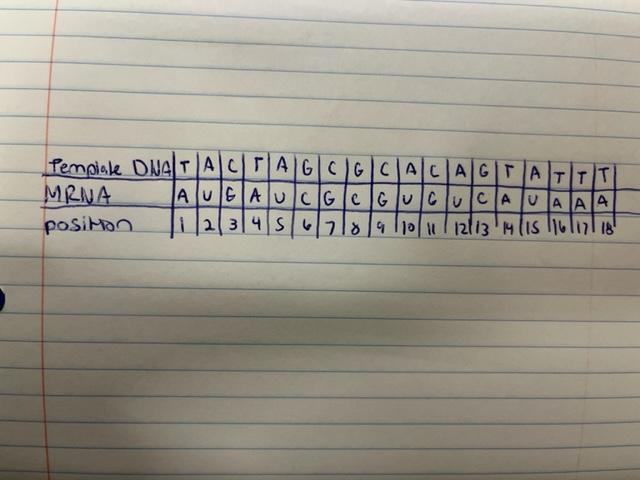 Template DNA T A C T A G C G C A C A G T A T T T
MRNA A U G A U C G C G U G U C A U A A A
position 1 2 3 4 5 6 7 8 9 10 11 12 13 14 15 16 17 18